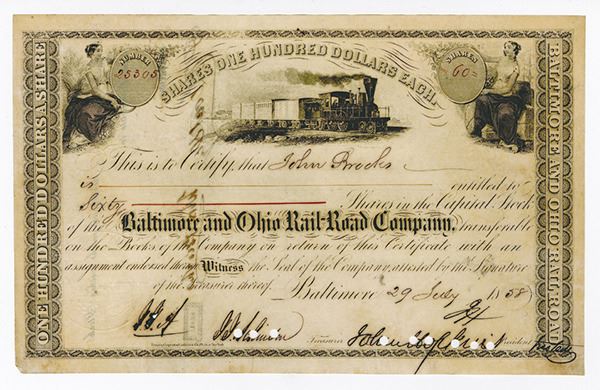 NUMBER
25305
SHARES ONE HUNDRED DOLLARS EACH.
SHARES
60
ONE HUNDRED DOLLARS A SHARE
BALTIMORE AND OHIO RAIL-ROAD
This is to Certify, that John Brooks
is entitled to
Sixty Shares in the Capital Stock
of the Baltimore and Ohio Rail-Road Company, transferable
on the Books of the Company on return of this Certificate with an
assignment endorsed thereon. Witness the Seal of the Company, attested by the Signature
of the Treasurer thereof. Baltimore 29 July 1858
Treasurer
President